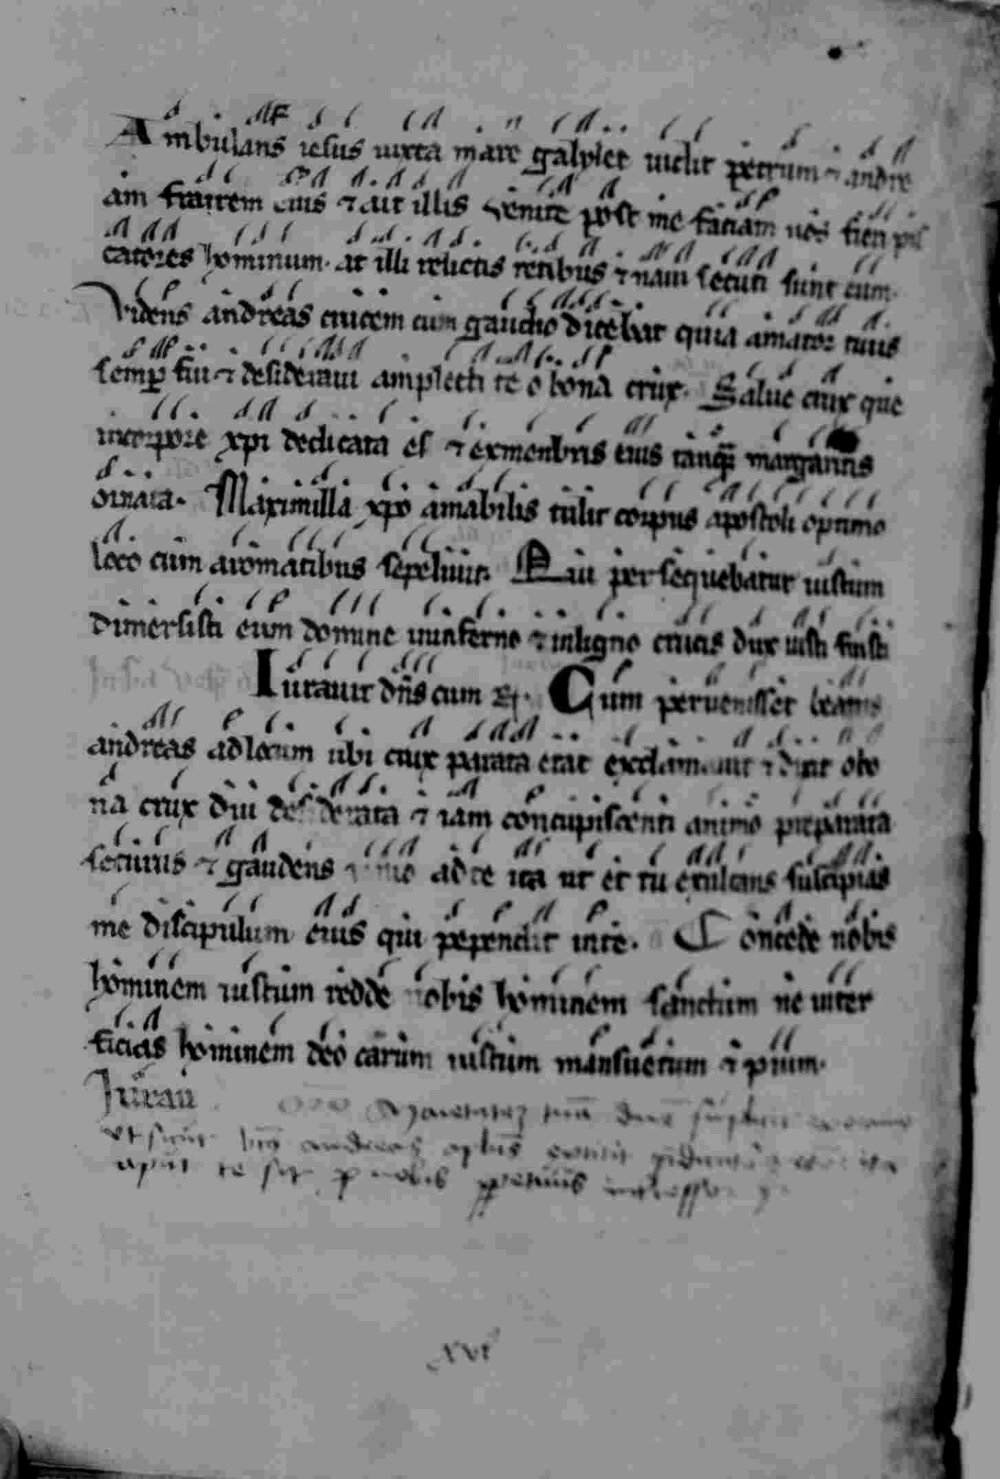 Ambulans iesus iuxta mare galylee uidit petrum ⁊ andre
am fratrem eius ⁊ ait illis Venite post me faciam uos fieri pis
catores hominum. at illi relictis retibus ⁊ naui secuti sunt eum.
Videns andreas crucem cum gaudio dicebat quia amator tuus
semꝑ fui ⁊ desideraui amplecti te o bona crux. Salue crux que
incorpore xpi dedicata es ⁊ exmenbris eius tanqͣ margaritis
ornata. Maximilla xpo amabilis tulit corpus apostoli optimo
loco cum aromatibus sepeliuit. Qui persequebatur iustum
dimersisti eum domine ininferno ⁊ inligno crucis dux iusti fuisti
Iurauit dn̄s cum Cum peruenisset beatus
andreas adlocum ubi crux parata erat exclamauit ⁊ dixit obo
na crux diu desiderata ⁊ iam concupiscenti animo preparata
securus ⁊ gaudens uenio adte ita ut et tu exultans suscipias
me discipulum eius qui pependit inte. Concede nobis
hominem iustum redde nobis hominem sanctum ne inter
ficias hominem deo carum iustum mansuetum ⁊ pium.
Iurau
Maiestatez tuā dn̄e
ut sicut andreas apl̄us
apud te sit ꝓ nobis ꝑpetuus
xvi